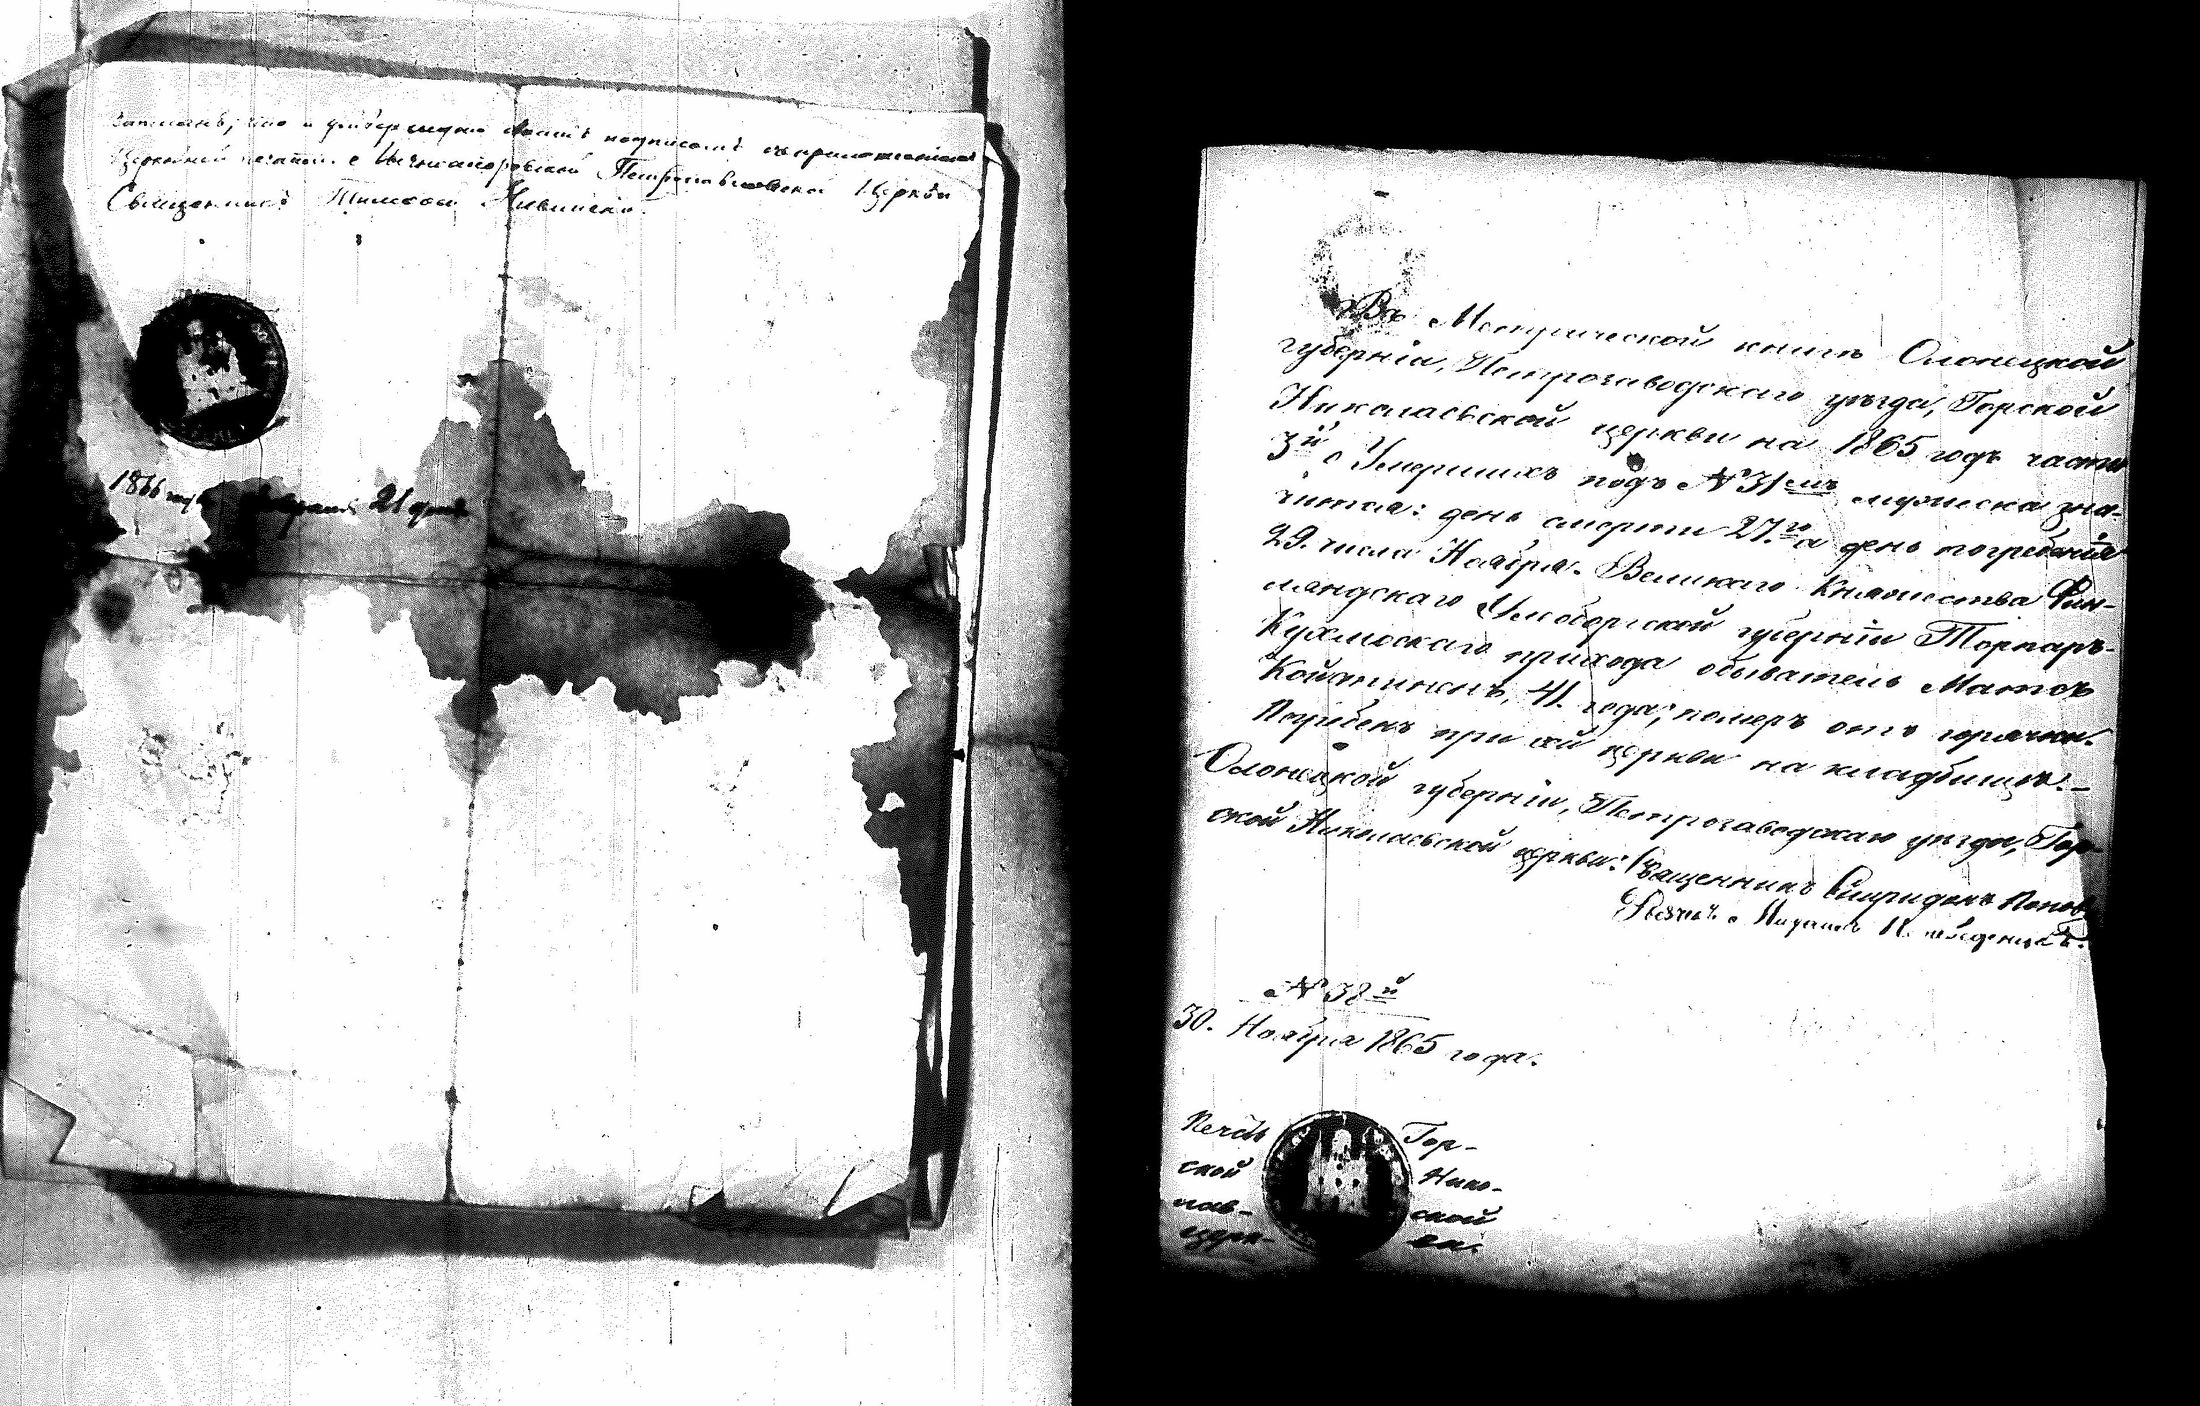 записанъ, что и утверждаю моимъ подписомъ съ приложеніемъ
Церковной печати. Петропавловской Церкви
Священникъ
1866 года Февраля 21 дня
Въ Метрической книгѣ Олонецкой
губерніи, Петрозаводскаго уѣзда, Горской
Николаевской церкви на 1865 годъ части
3й о Умершихъ подъ №31мъ мужеска зна-
чится: день смерти 27.го а день погребенія
29. числа Ноября. Великаго Княжества Фин-
ляндскаго Улеоборгской губерніи Торпарь
Кухмоскаго прихода обыватель Матсъ
Койаниненъ, 41. года; померъ отъ горячки.
Погребенъ при сей церкви на кладбищѣ.–
Олонецкой губерніи, Петрозаводскаго уѣзда, Гор-
ской Николаевской церкви: Священникъ Спиридонъ Поповъ
№38й
30. Ноября 1865 года.
Печать Гор-
ской Нико-
лаев- ской
церк- ви.